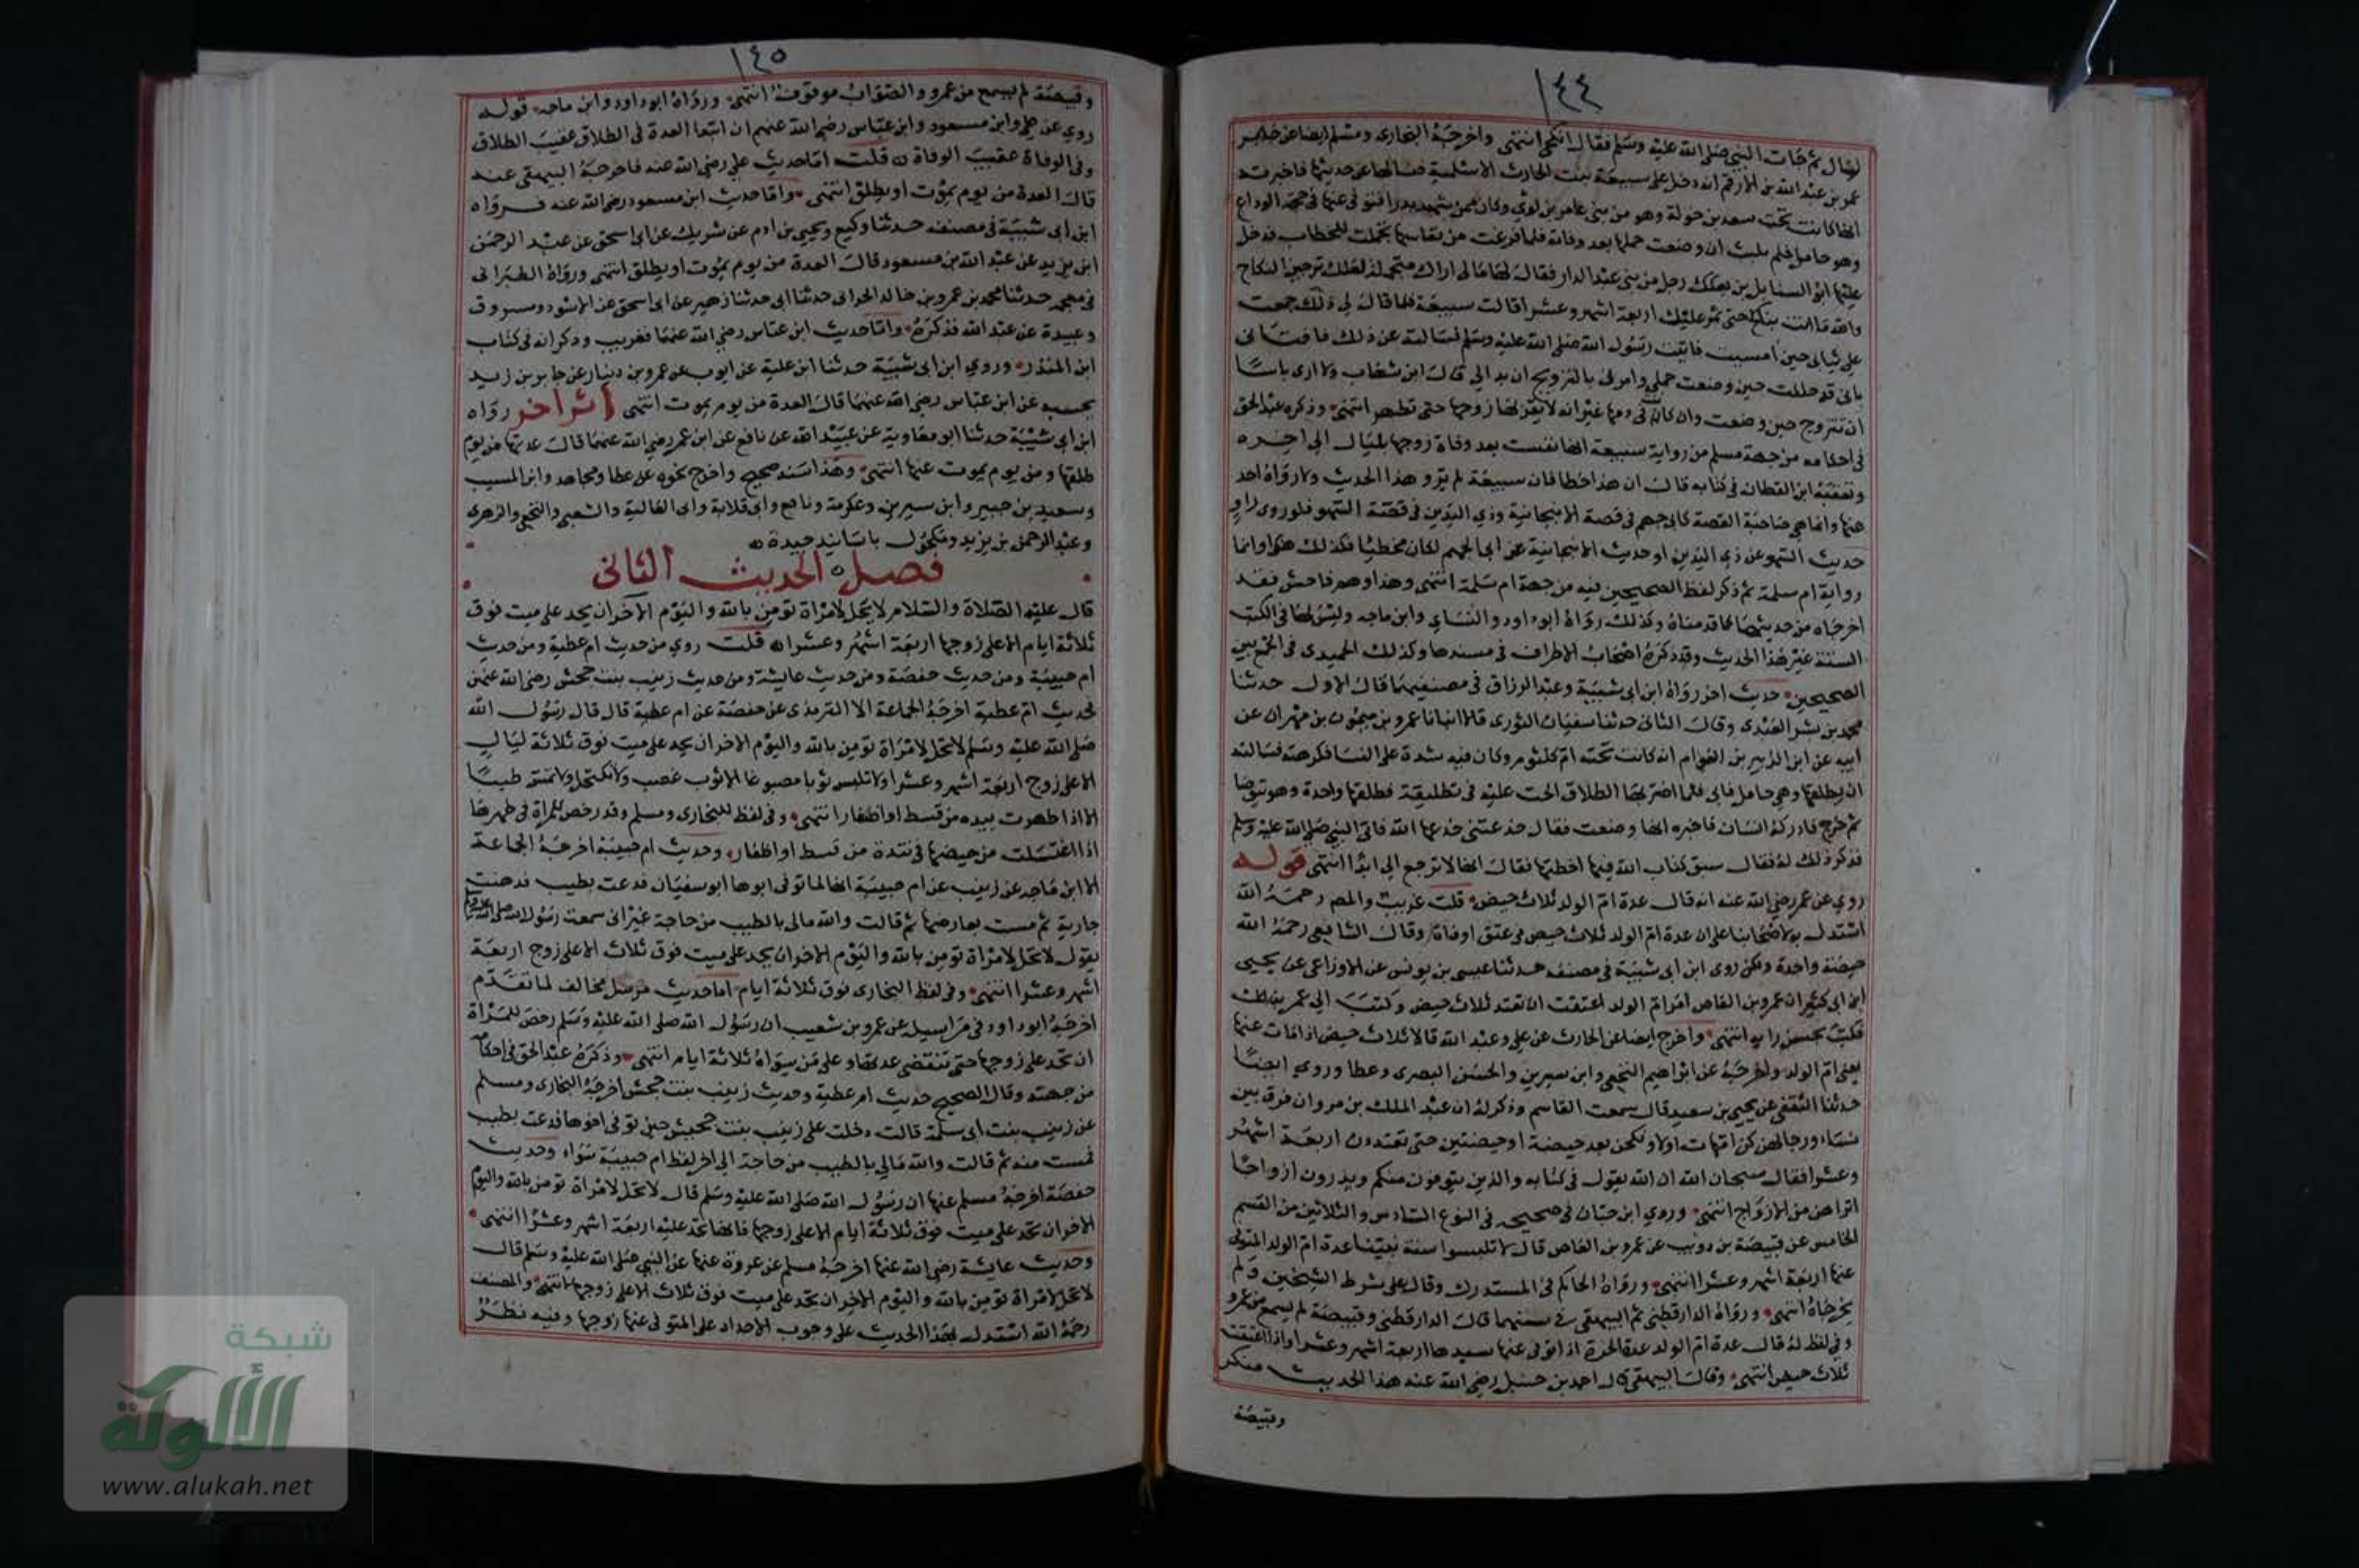 ١٤٤
ليال ثم جات النبي صلى الله عليه وسلم فقال انكحي انتهى واخرجه البخارى ومسلم ايضا عن
عمر بن عبد الله بن الارقم انه دخل على سبيعة بنت الحارث الاسلمية فسالها عن حديثها فاخبرته
انها كانت تحت سعد بن خولة وهو من بنى عامر بن لؤي وكان ممن شهد بدرا فتوفى عنها فى حجة الوداع
وهو حامل فلم يلبث ان وضعت حملها بعد وفاته فلما فرغت من نفاسها تجملت للخطاب فدخل
عليها ابو السنابل بن بعكك رجل من بنى عبد الدار فقال لها مالى اراك متجملة لعلك ترجين النكاح
والله ما انت بناكح حتى تمر عليك اربعة اشهر وعشرا قالت سبيعة فلما قال لى ذلك جمعت
على ثيابى حين امسيت فاتيت رسول الله صلى الله عليه وسلم فسالته عن ذلك فافتانى
بانى قد حللت حين وضعت حملي وامرنى بالتزويج ان بدا لي قال ابن شهاب ولا ارى باسا
ان تتزوج حين وضعت وان كانت فى دمها غير انه لا يقربها زوجها حتى تطهر انتهى وذكره عبد الحق
فى احكامه من جهة مسلم من رواية سبيعة انها نفست بعد وفاة زوجها بليال الى اخره
وتعقبه ابن القطان فى كتابه قال ان هذا خطا فان سبيعة لم ترو هذا الحديث ولا رواه احد
عنها وانما هى صاحبة القصة كابى جهم فى قصة الانبجانية وذي اليدين فى قصة السهو فلو روى راو
حديث السهو عن ذي اليدين او حديث الانبجانية عن ابى الجهم لكان مخطئا فكذلك هذا وانما
رواية ام سلمة ثم ذكر لفظ الصحيحين فيه من جهة ام سلمة انتهى وهذا وهم فاحش فقد
اخرجاه من حديثهما كما قدمناه وكذلك رواه ابو داود والنساي وابن ماجه وليس لها فى الكتب
الستة غير هذا الحديث وقد ذكره اصحاب الاطراف فى مسندها وكذلك الحميدى فى الجمع بين
الصحيحين حديث اخر رواه ابن ابى شيبة وعبد الرزاق فى مصنفيهما قال الاول حدثنا
محمد بن بشر العبدى وقال الثانى حدثنا سفيان الثورى قالا انبانا عمرو بن ميمون بن مهران عن
ابيه عن ابن الزبير بن العوام انه كانت تحته ام كلثوم وكان فيه شدة على النسا فكرهته فسالته
ان يطلقها وهى حامل فابى فلما اضر بها الطلاق الحت عليه فى تطليقة فطلقها واحدة وهو يتوضا
ثم خرج فادركه انسان فاخبره انها وضعت فقال خدعتنى خدعها الله فاتى النبي صلى الله عليه وسلم
فذكر ذلك له فقال سبق كتاب الله فيها اخطبها فقال انها لا ترجع الى ابدا انتهى قوله
روي عن عمر رضي الله عنه انه قال عدة ام الولد ثلاث حيض قلت غريب والمص رحمه الله
استدل به لاصحابنا على ان عدة ام الولد ثلاث حيض فى عتق او وفاة وقال الشافعى رحمه الله
حيضة واحدة ولكن روى ابن ابى شيبة فى مصنفه حدثنا عيسى بن يونس عن الاوزاعى عن يحيى
ابن ابى كثير ان عمرو بن العاص امر ام الولد اعتقت ان تعتد ثلاث حيض وكتب الى عمر بذلك
فكتب بحسن رايه انتهى واخرج ايضا عن الحارث عن على وعبد الله قالا ثلاث حيض اذا مات عنها
يعنى ام الولد واخرجه عن ابراهيم النخعى وابن سيرين والحسن البصرى وعطا وروي ايضا
حدثنا الثقفى عن يحيى بن سعيد قال سمعت القاسم وذكر له ان عبد الملك بن مروان فرق بين
نساء ورجالهن كن امهات اولاد نكحن بعد حيضة او حيضتين حتى تعتدون اربعة اشهر
وعشرا فقال سبحان الله ان الله يقول فى كتابه والذين يتوفون منكم ويذرون ازواجا
اتراهن من الازواج انتهى وروي ابن حبان فى صحيحه فى النوع السادس والثلاثين من القسم
الخامس عن قبيصة بن ذويب عن عمرو بن العاص قال لا تلبسوا سنة نبينا عدة ام الولد المتوفى
عنها اربعة اشهر وعشرا انتهى ورواه الحاكم فى المستدرك وقال على شرط الشيخين ولم
يخرجاه انتهى ورواه الدارقطنى ثم البيهقى فى سننهما قال الدارقطنى وقبيصة لم يسمع من عمرو
وفى لفظ له قال عدة ام الولد عدة الحرة اذا توفى عنها سيدها اربعة اشهر وعشرا واذا اعتقت
ثلاث حيض انتهى وقال البيهقى قال احمد بن حنبل رضى الله عنه هذا الحديث منكر
وقبيصة
١٤٥
وقبيصة لم يسمع من عمرو والصواب موقوف انتهى ورواه ابو داود وابن ماجه قوله
روي عن علي وابن مسعود وابن عباس رضى الله عنهم ان ابتدا العدة فى الطلاق عقيب الطلاق
وفى الوفاة عقيب الوفاة قلت اما حديث علي رضي الله عنه فاخرجه البيهقى عنه
قال العدة من يوم يموت او يطلق انتهى واما حديث ابن مسعود رضى الله عنه فرواه
ابن ابى شيبة فى مصنفه حدثنا وكيع ويحيى بن ادم عن شريك عن ابى اسحق عن عبد الرحمن
ابن يزيد عن عبد الله بن مسعود قال العدة من يوم يموت او يطلق انتهى ورواه الطبرانى
فى معجمه حدثنا محمد بن عمرو بن خالد الحرانى حدثنا ابى حدثنا زهير عن ابى اسحق عن الاسود ومسروق
وعبيدة عن عبد الله فذكره واما حديث ابن عباس رضي الله عنهما فغريب وذكر انه فى كتاب
ابن المنذر وروي ابن ابى شيبة حدثنا ابن علية عن ايوب عن عمرو بن دينار عن جابر بن زيد
بحسبه عن ابن عباس رضي الله عنهما قال العدة من يوم يموت انتهى اثر اخر رواه
ابن ابى شيبة حدثنا ابو معاوية عن عبيد الله عن نافع عن ابن عمر رضي الله عنهما قال عدتها من يوم
طلقها ومن يوم يموت عنها انتهى وهذا سند صحيح واخرج نحوه عن عطا ومجاهد وابن المسيب
وسعيد بن جبير وابن سيرين وعكرمة ونافع وابى قلابة وابى العالية والشعبى والنخعى والزهرى
وعبد الرحمن بن يزيد ومكحول باسانيد جيدة
فصل الحديث الثانى
قال عليه الصلاة والسلام لا يحل لامراة تؤمن بالله واليوم الآخر ان تحد على ميت فوق
ثلاثة ايام الا على زوجها اربعة اشهر وعشرا قلت روي من حديث ام عطية ومن حديث
ام حبيبة ومن حديث حفصة ومن حديث عايشة ومن حديث زينب بنت جحش رضى الله عنهن
فحديث ام عطية اخرجه الجماعة الا الترمذى عن حفصة عن ام عطية قال قال رسول الله
صلى الله عليه وسلم لا تحل لامراة تؤمن بالله واليوم الاخر ان تحد على ميت فوق ثلاثة ليال
الا على زوج اربعة اشهر وعشرا ولا تلبس ثوبا مصبوغا الا ثوب عصب ولا تكتحل ولا تمس طيبا
الا اذا طهرت نبذة من قسط او اظفار انتهى وفى لفظ للبخارى ومسلم وقد رخص للمراة فى طهرها
اذا اغتسلت من حيضها فى نبذة من قسط او اظفار وحديث ام حبيبة اخرجه الجماعة
الا ابن ماجه عن زينب عن ام حبيبة انها لما توفى ابوها ابو سفيان فدعت بطيب فدهنت
جارية ثم مست بعارضها ثم قالت والله مالى بالطيب من حاجة غير انى سمعت رسول الله صلى الله عليه وسلم
يقول لا تحل لامراة تؤمن بالله واليوم الاخر ان تحد على ميت فوق ثلاث الا على زوج اربعة
اشهر وعشرا انتهى وفى لفظ البخارى فوق ثلاثة ايام اما حديث مرسل مخالف لما تقدم
اخرجه ابو داود فى مراسيله عن عمرو بن شعيب ان رسول الله صلى الله عليه وسلم رخص للمراة
ان تحد على زوجها حتى تنقضى عدتها وعلى من سواه ثلاثة ايام انتهى وذكره عبد الحق فى احكامه
من جهته وقال الصحيح حديث ام عطية وحديث زينب بنت جحش اخرجه البخارى ومسلم
عن زينب بنت ابى سلمة قالت دخلت على زينب بنت جحش حين توفى اخوها فدعت بطيب
فمست منه ثم قالت والله مالي بالطيب من حاجة الى اخر لفظ ام حبيبة سواء وحديث
حفصة اخرجه مسلم عنها ان رسول الله صلى الله عليه وسلم قال لا تحل لامراة تؤمن بالله واليوم
الاخر ان تحد على ميت فوق ثلاثة ايام الا على زوجها فانها تحد عليه اربعة اشهر وعشرا انتهى
وحديث عايشة رضى الله عنها اخرجه مسلم عن عروة عنها عن النبي صلى الله عليه وسلم قال
لا تحل لامراة تؤمن بالله واليوم الاخر ان تحد على ميت فوق ثلاث الا على زوجها انتهى والمصنف
رحمه الله استدل بهذا الحديث على وجوب الاحداد على المتوفى عنها زوجها وفيه نظر
شبكة
الألوكة
www.alukah.net